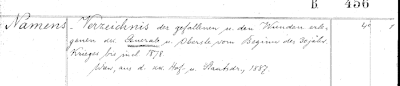 B 456
Namens-Verzeichnis der gefallenen u. den Wunden erle-
genen der Generale u. Oberste vom Beginn des 30jähr.
Krieges bis incl. 1878.
Wien, aus d. kk. Hof- u. Staatsdr., 1887.
4°